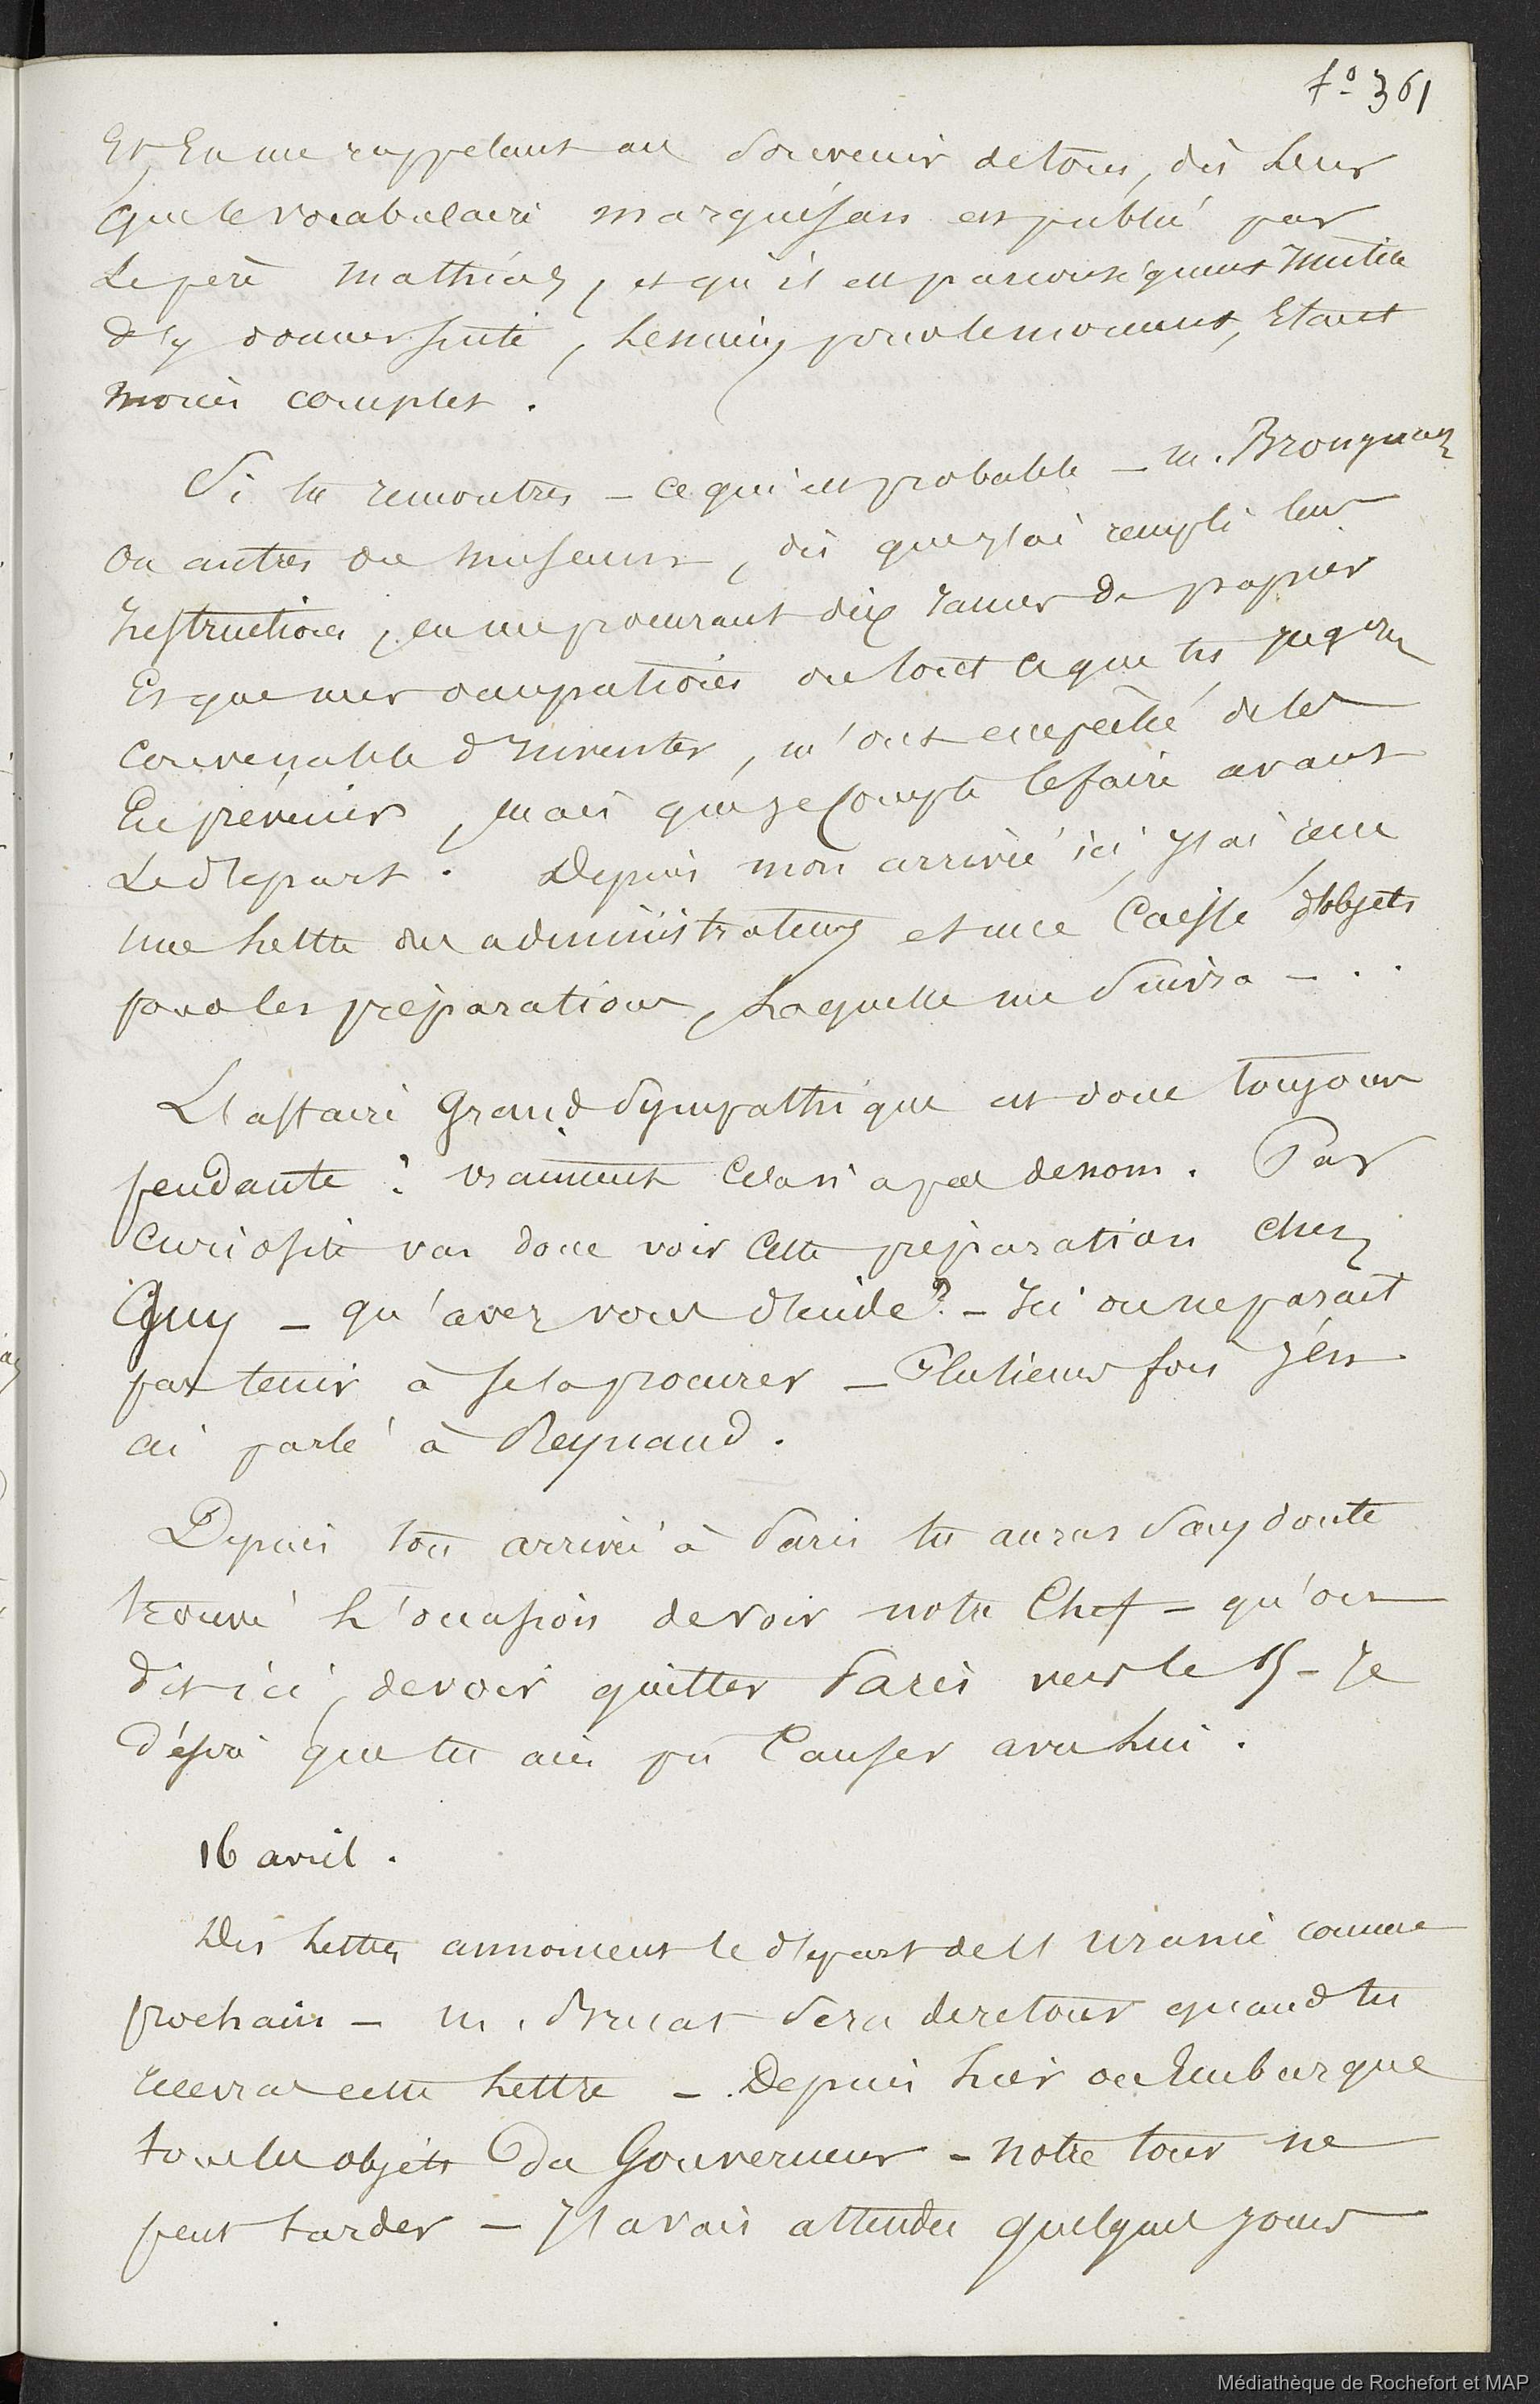 fo 361
Et en me rappelant au souvenir de tous, dis leur
que le vocabulaire marquisan est publié par
Le père Mathias, et qu'il est par conséquent inutile
d'y donner suite, le mien, pour le moment, étant
moins complet.
Si tu rencontres — ce qui est probable — m. Brongniart
ou autres du museum, dis que j'ai rempli leurs
Instructions, en me procurant dix rames de papier
Et que mes occupations ou tout ce que tu jugeras
Convenable d'inventer, m'ont empêché de les
En prévenir, mais que je compte le faire avant
Le départ. Depuis mon arrivée ici, j'ai reçu
une lettre des administrateurs et une caisse d'objets
pour les préparations, laquelle me suivra — ..
L'affaire Grand Sympathique est donc toujours
pendante ? vraiment cela n'a pas de nom. Par
Curiosité vas donc voir cette préparation chez
Guy — qu'avez vous décidé ? — Ici on ne parait
pas tenir à se la procurer — Plusieurs fois j'en
ai parlé à Reynaud.
Depuis ton arrivée à Paris tu auras sans doute
trouvé l'occasion de voir notre Chef — qu'on
dit ici, devoir quitter Paris vers le 15 — Je
désire que tu aies pu causer avec lui.
16 avril.
Des lettres annoncent le départ de l'Uranie comme
prochain — M. Bruat sera de retour quand tu
recevras cette lettre — Depuis hier on embarque
tous les objets du Gouverneur — notre tour ne
peut tarder — J'avais attendu quelques jours
Médiathèque de Rochefort et MAP